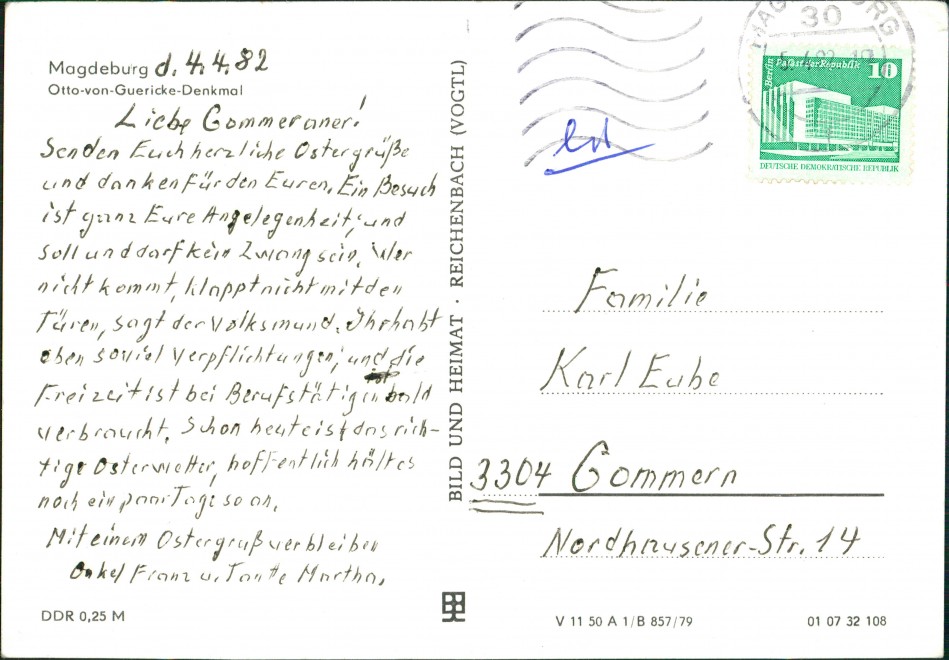 Magdeburg d. 4.4.82
Otto-von-Guericke-Denkmal
Liebe Gommeraner!
Senden Euch herzliche Ostergrüße
und danken für den Euren. Ein Besuch
ist ganz Eure Angelegenheit, und
soll und darf kein Zwang sein. Wer
nicht kommt, klappt nicht mit den
Türen, sagt der Volksmund. Ihr habt
eben soviel Verpflichtungen, und die
Freizeit ist bei Berufstätigen bald
verbraucht. Schon heute ist das rich-
tige Osterwetter, hoffentlich hält es
noch ein paar Tage so an.
Mit einem Ostergruß verbleiben
Onkel Franz u. Tante Martha.
DDR 0,25 M
BILD UND HEIMAT · REICHENBACH (VOGTL)
MAGDEBURG
30
Berlin Palast der Republik
10
DEUTSCHE DEMOKRATISCHE REPUBLIK
Familie
Karl Eube
3304 Gommern
Nordhausener-Str. 14
V 11 50 A 1/B 857/79
01 07 32 108